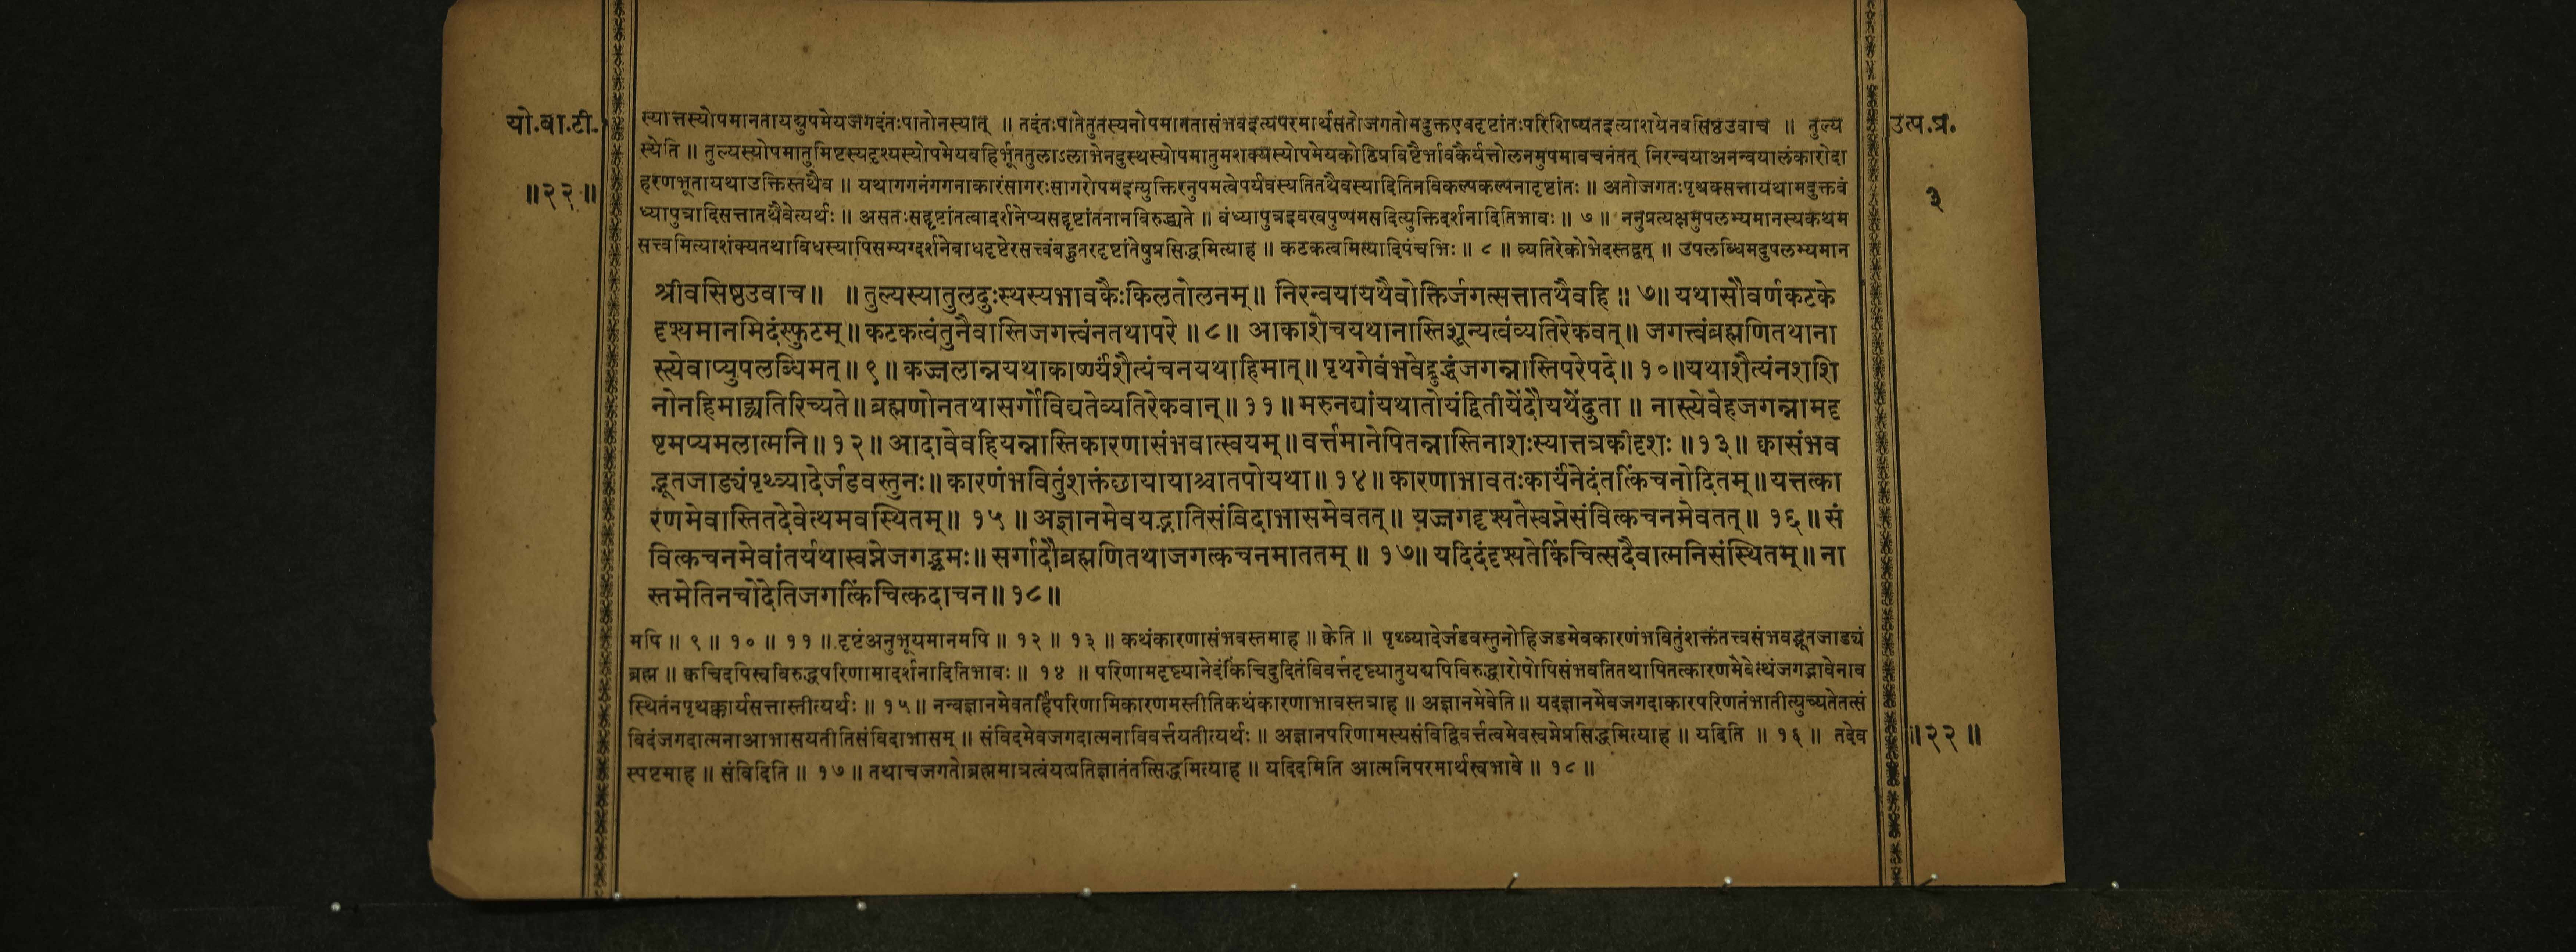 यो.वा.टी.
॥२२॥
स्यात्तस्योपमानतायद्युपमेयजगदंतःपातोनस्यात् ॥ तदंतःपातेतुतस्यनोपमानतासंभवइत्यपरमार्थसतोजगतोमदुक्तएवदृष्टांतःपरिशिष्यतइत्याशयेनवसिष्ठउवाच ॥ तुल्य
स्येति ॥ तुल्यस्योपमातुमिष्टस्यदृश्यस्योपमेयबहिर्भूततुलाऽलाभेनदुस्थस्योपमातुमशक्यस्योपमेयकोटिप्रविष्टैर्भावकैर्यत्तोलनमुपमावचनंतत् निरन्वयाअनन्वयालंकारोदा
हरणभूतायथाउक्तिस्तथैव ॥ यथागगनंगगनाकारंसागरःसागरोपमइत्युक्तिरनुपमत्वेपर्यवस्यतितथैवस्यादितिनविकल्पकल्पनादृष्टांतः ॥ अतोजगतःपृथक्सत्तायथामदुक्तवं
ध्यापुत्रादिसत्तातथैवेत्यर्थः ॥ असतःसद्दृष्टांतत्वादर्शनेप्यसद्दृष्टांततानविरुद्ध्यते ॥ वंध्यापुत्रइवखपुष्पमसदित्युक्तिदर्शनादितिभावः ॥ ७ ॥ ननुप्रत्यक्षमुपलभ्यमानस्यकथम
सत्त्वमित्याशंक्यतथाविधस्यापिसम्यग्दर्शनेबाधदृष्टेरसत्त्वंबहुतरदृष्टांतेषुप्रसिद्धमित्याह ॥ कटकत्वमित्यादिपंचभिः ॥ ८ ॥ व्यतिरेकोभेदस्तद्वत् ॥ उपलब्धिमदुपलभ्यमान
श्रीवसिष्ठउवाच ॥ ॥ तुल्यस्यातुलदुःस्थस्यभावकैःकिलतोलनम् ॥ निरन्वयायथैवोक्तिर्जगत्सत्तातथैवहि ॥ ७ ॥ यथासौवर्णकटके
दृश्यमानमिदंस्फुटम् ॥ कटकत्वंतुनैवास्तिजगत्त्वंनतथापरे ॥ ८ ॥ आकाशेचयथानास्तिशून्यत्वंव्यतिरेकवत् ॥ जगत्त्वंब्रह्मणितथाना
स्त्येवाप्युपलब्धिमत् ॥ ९ ॥ कज्जलान्नयथाकार्ष्ण्यंशैत्यंचनयथाहिमात् ॥ पृथगेवंभवेद्बुद्धंजगन्नास्तिपरेपदे ॥ १० ॥ यथाशैत्यंनशशि
नोनहिमाद्व्यतिरिच्यते ॥ ब्रह्मणोनतथासर्गोविद्यतेव्यतिरेकवान् ॥ ११ ॥ मरुनद्यांयथातोयंद्वितीयेंदौयथेंदुता ॥ नास्त्येवेहजगन्नामदृ
ष्टमप्यमलात्मनि ॥ १२ ॥ आदावेवहियन्नास्तिकारणासंभवात्स्वयम् ॥ वर्त्तमानेपितन्नास्तिनाशःस्यात्तत्रकीदृशः ॥ १३ ॥ क्वासंभव
द्भूतजाड्यंपृथ्व्यादेर्जडवस्तुनः ॥ कारणंभवितुंशक्तंछायायाश्चातपोयथा ॥ १४ ॥ कारणाभावतःकार्यंनेदंतत्किंचनोदितम् ॥ यत्तत्का
रणमेवास्तितदेवेत्थमवस्थितम् ॥ १५ ॥ अज्ञानमेवयद्भातिसंविदाभासमेवतत् ॥ यज्जगद्दृश्यतेस्वप्नेसंवित्कचनमेवतत् ॥ १६ ॥ सं
वित्कचनमेवांतर्यथास्वप्नेजगद्भ्रमः ॥ सर्गादौब्रह्मणितथाजगत्कचनमाततम् ॥ १७ ॥ यदिदंदृश्यतेकिंचित्सदैवात्मनिसंस्थितम् ॥ ना
स्तमेतिनचोदेतिजगत्किंचित्कदाचन ॥ १८ ॥
मपि ॥ ९ ॥ १० ॥ ११ ॥ दृष्टंअनुभूयमानमपि ॥ १२ ॥ १३ ॥ कथंकारणासंभवस्तमाह ॥ क्वेति ॥ पृथ्व्यादेर्जडवस्तुनोहिजडमेवकारणंभवितुंशक्तंतत्त्वसंभवद्भूतजाड्यं
ब्रह्म ॥ क्वचिदपिस्वविरुद्धपरिणामादर्शनादितिभावः ॥ १४ ॥ परिणामदृष्ट्यानेदंकिंचिदुदितंविवर्त्तदृष्ट्यातुयद्यपिविरुद्धारोपोपिसंभवतितथापितत्कारणमेवेत्थंजगद्भावेनाव
स्थितंनपृथक्कार्यसत्तास्तीत्यर्थः ॥ १५ ॥ नन्वज्ञानमेवतर्हिपरिणामिकारणमस्तीतिकथंकारणाभावस्तत्राह ॥ अज्ञानमेवेति ॥ यदज्ञानमेवजगदाकारपरिणतंभातीत्युच्यतेतत्सं
विदंजगदात्मनाआभासयतीतिसंविदाभासम् ॥ संविदमेवजगदात्मनाविवर्त्तयतीत्यर्थः ॥ अज्ञानपरिणामस्यसंविद्विवर्त्तत्वमेवस्वप्नेप्रसिद्धमित्याह ॥ यदिति ॥ १६ ॥ तदेव
स्पष्टमाह ॥ संविदिति ॥ १७ ॥ तथाचजगतोब्रह्ममात्रत्वंयत्प्रतिज्ञातंतत्सिद्धमित्याह ॥ यदिदमिति आत्मनिपरमार्थस्वभावे ॥ १८ ॥
उत्प.प्र.
३
॥२२॥